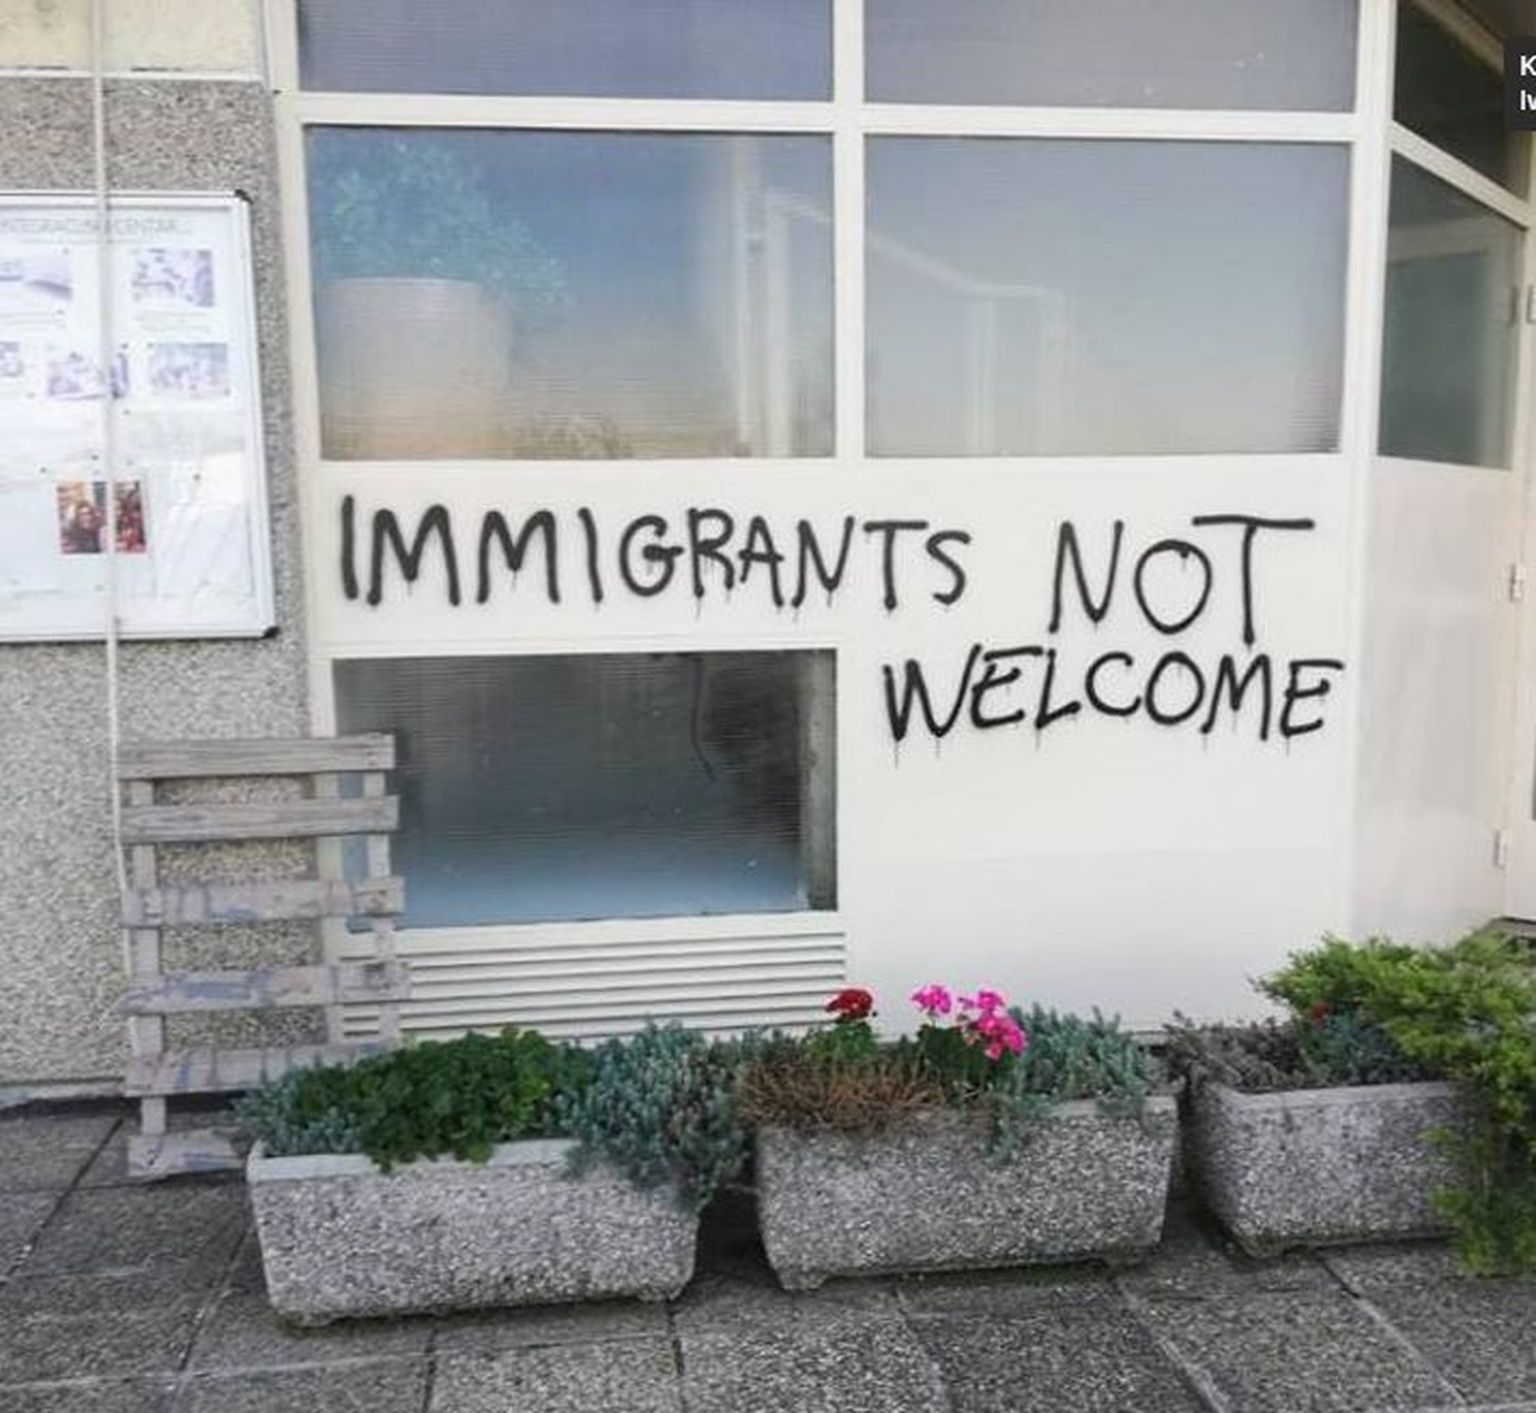 INTEGRACIJSKI CENTAR
IMMIGRANTS NOT
WELCOME